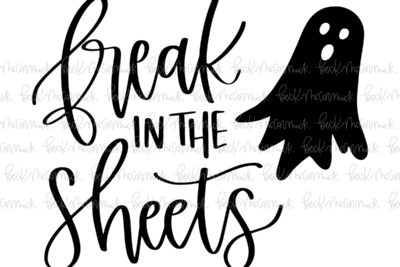 freak
IN THE
Sheets